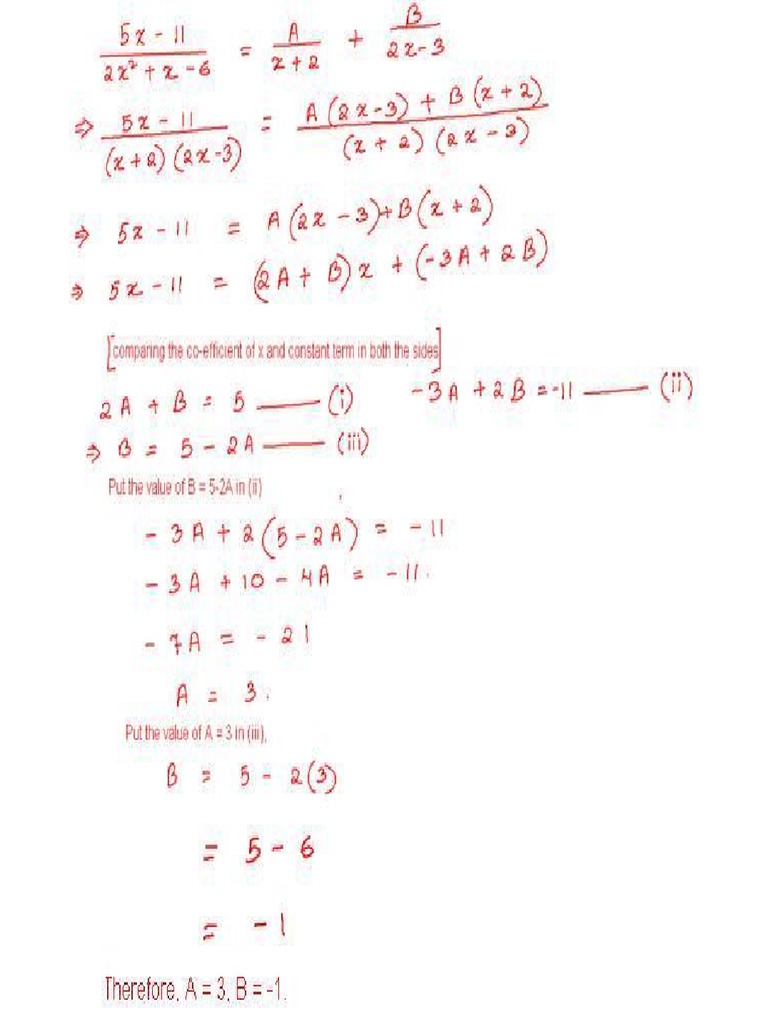 5x - 11 / 2x² + x - 6 = A / x + 2 + B / 2x - 3
⇒ 5x - 11 / (x + 2) (2x - 3) = A (2x - 3) + B (x + 2) / (x + 2) (2x - 3)
⇒ 5x - 11 = A (2x - 3) + B (x + 2)
⇒ 5x - 11 = (2A + B) x + (-3A + 2B)
[comparing the co-efficient of x and constant term in both the sides]
2A + B = 5 —— (i) -3A + 2B = -11 —— (ii)
⇒ B = 5 - 2A —— (iii)
Put the value of B = 5-2A in (ii)
- 3A + 2 (5 - 2A) = - 11
- 3A + 10 - 4A = - 11.
- 7A = - 21
A = 3.
Put the value of A = 3 in (iii),
B = 5 - 2(3)
= 5 - 6
= - 1
Therefore, A = 3, B = -1.